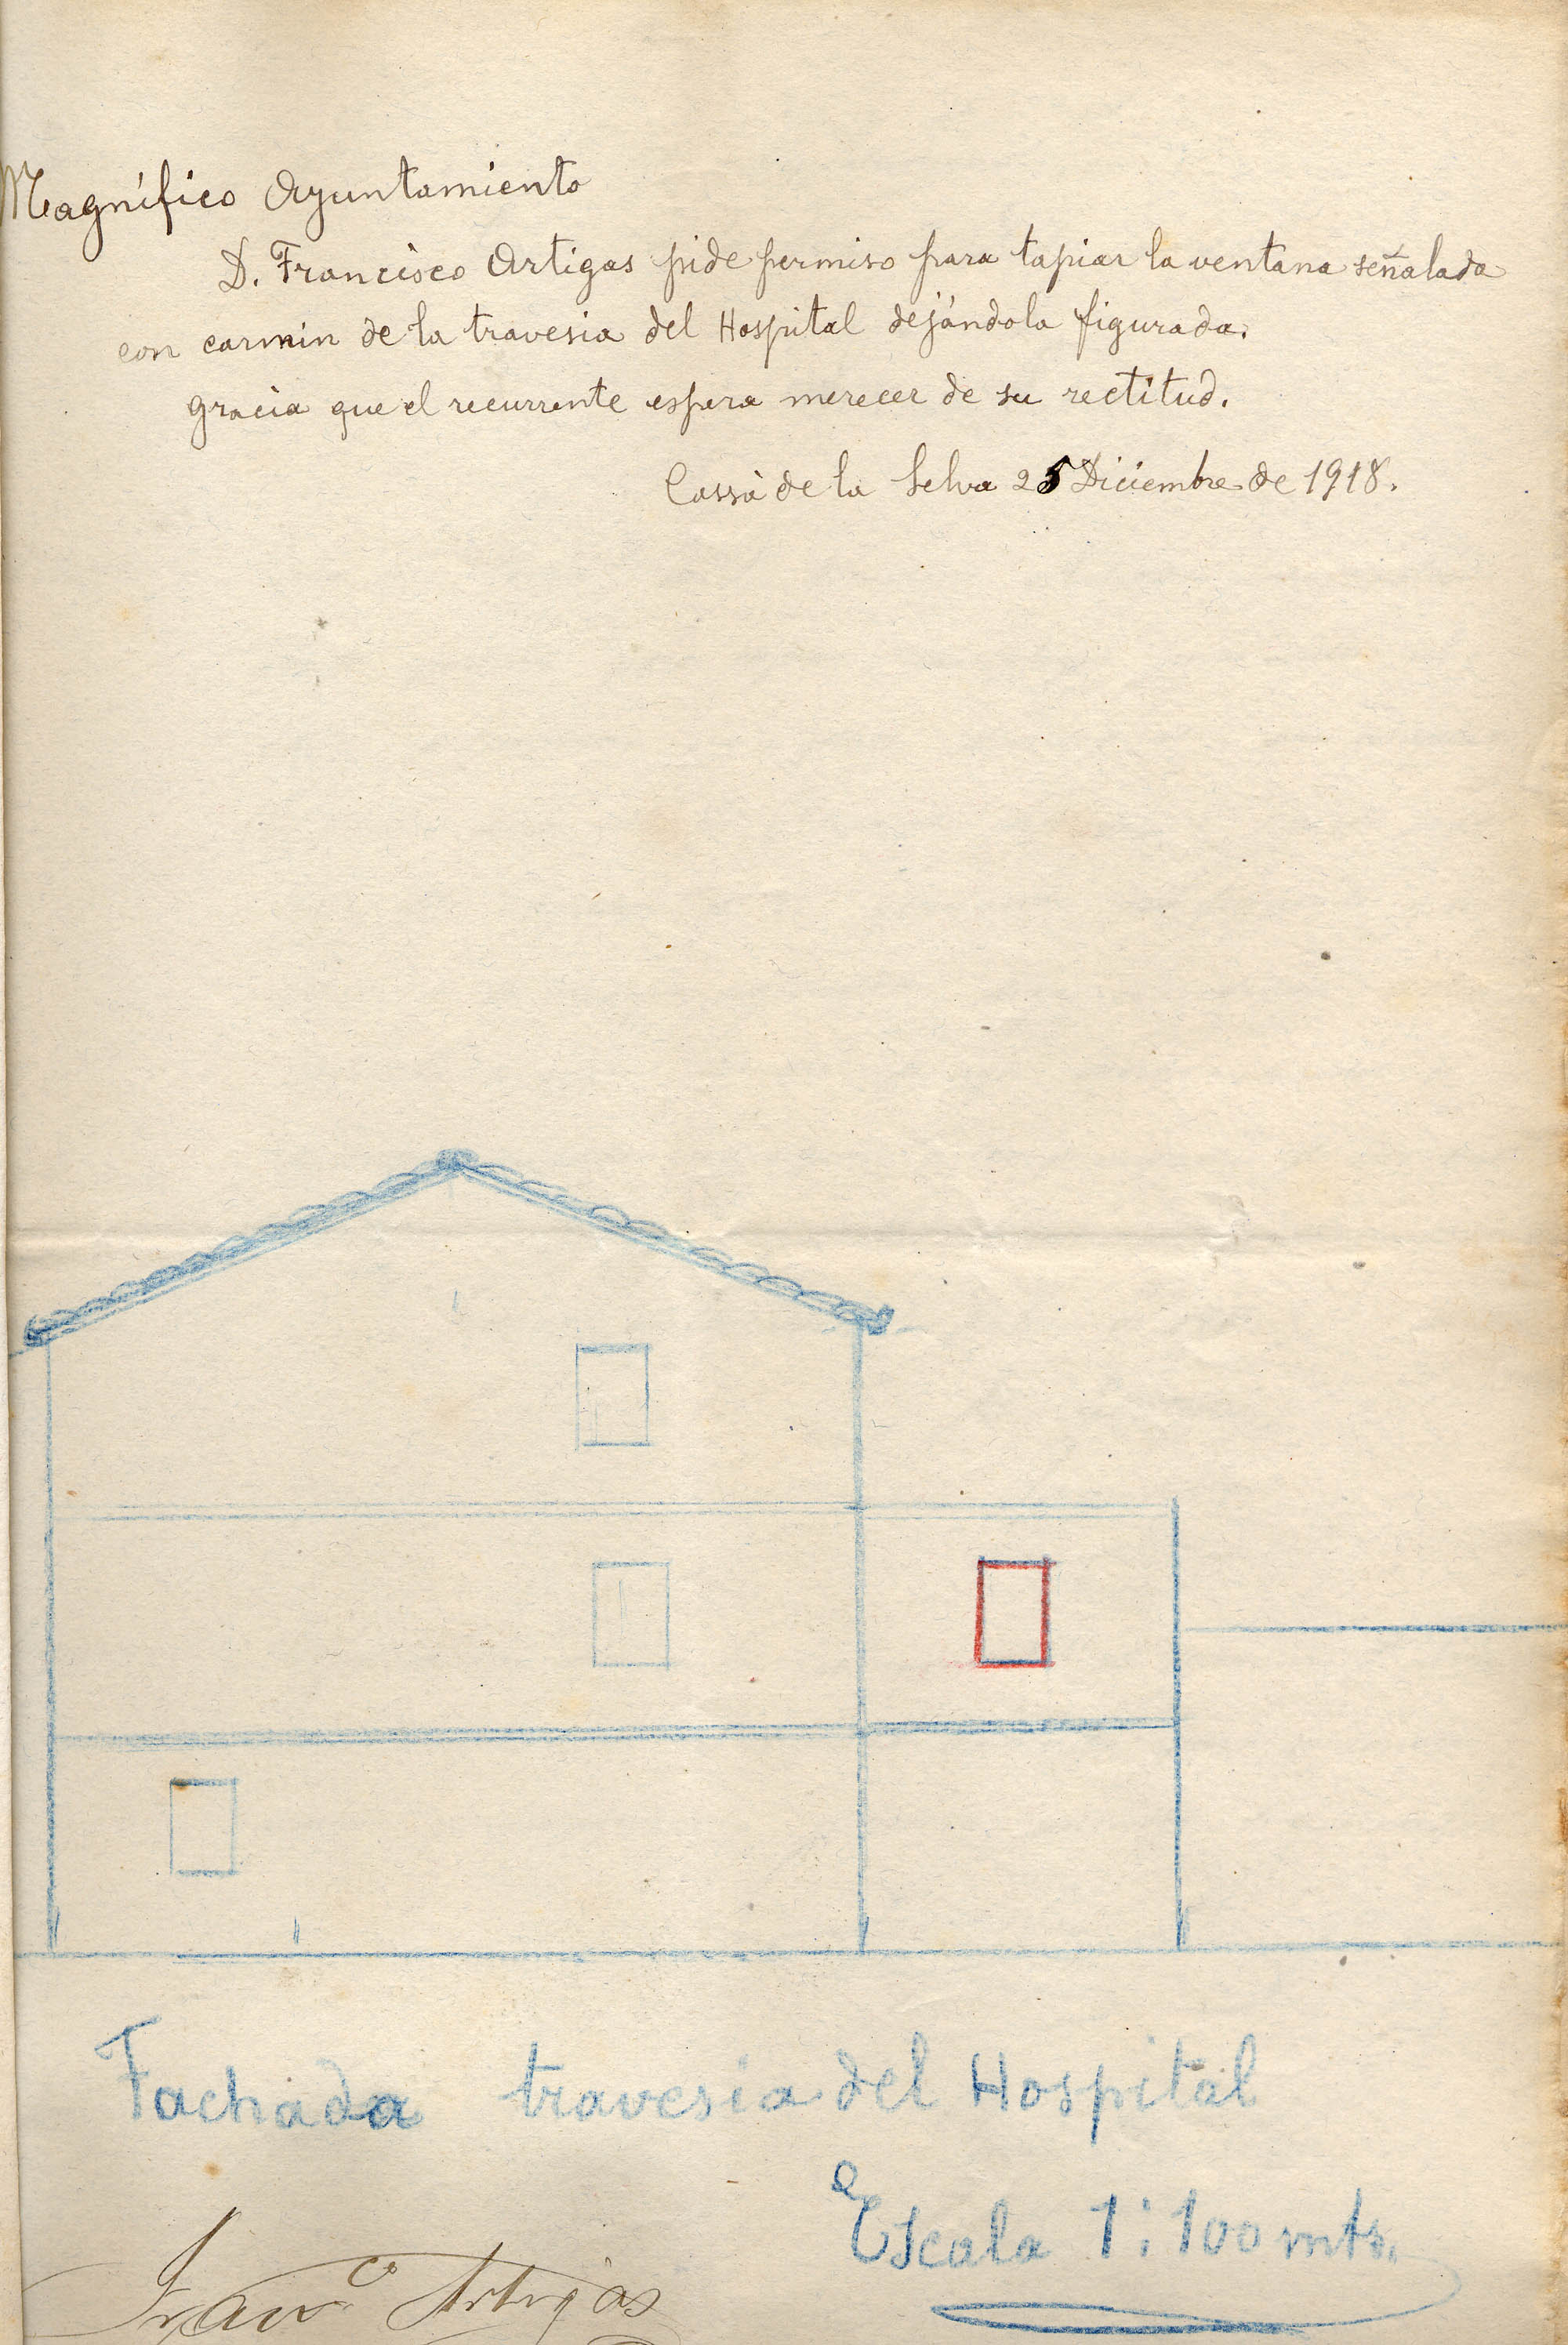 Magnífico Ayuntamiento
D. Francisco Artigas pide permiso para tapiar la ventana señalada
con carmin de la travesia del Hospital dejándola figurada.
gracia que el recurrente espera merecer de su rectitud.
Cassà de la Selva 25 Diciembre de 1918.
Fachada travesia del Hospital
Escala 1:100 mts.
Franco Artigas